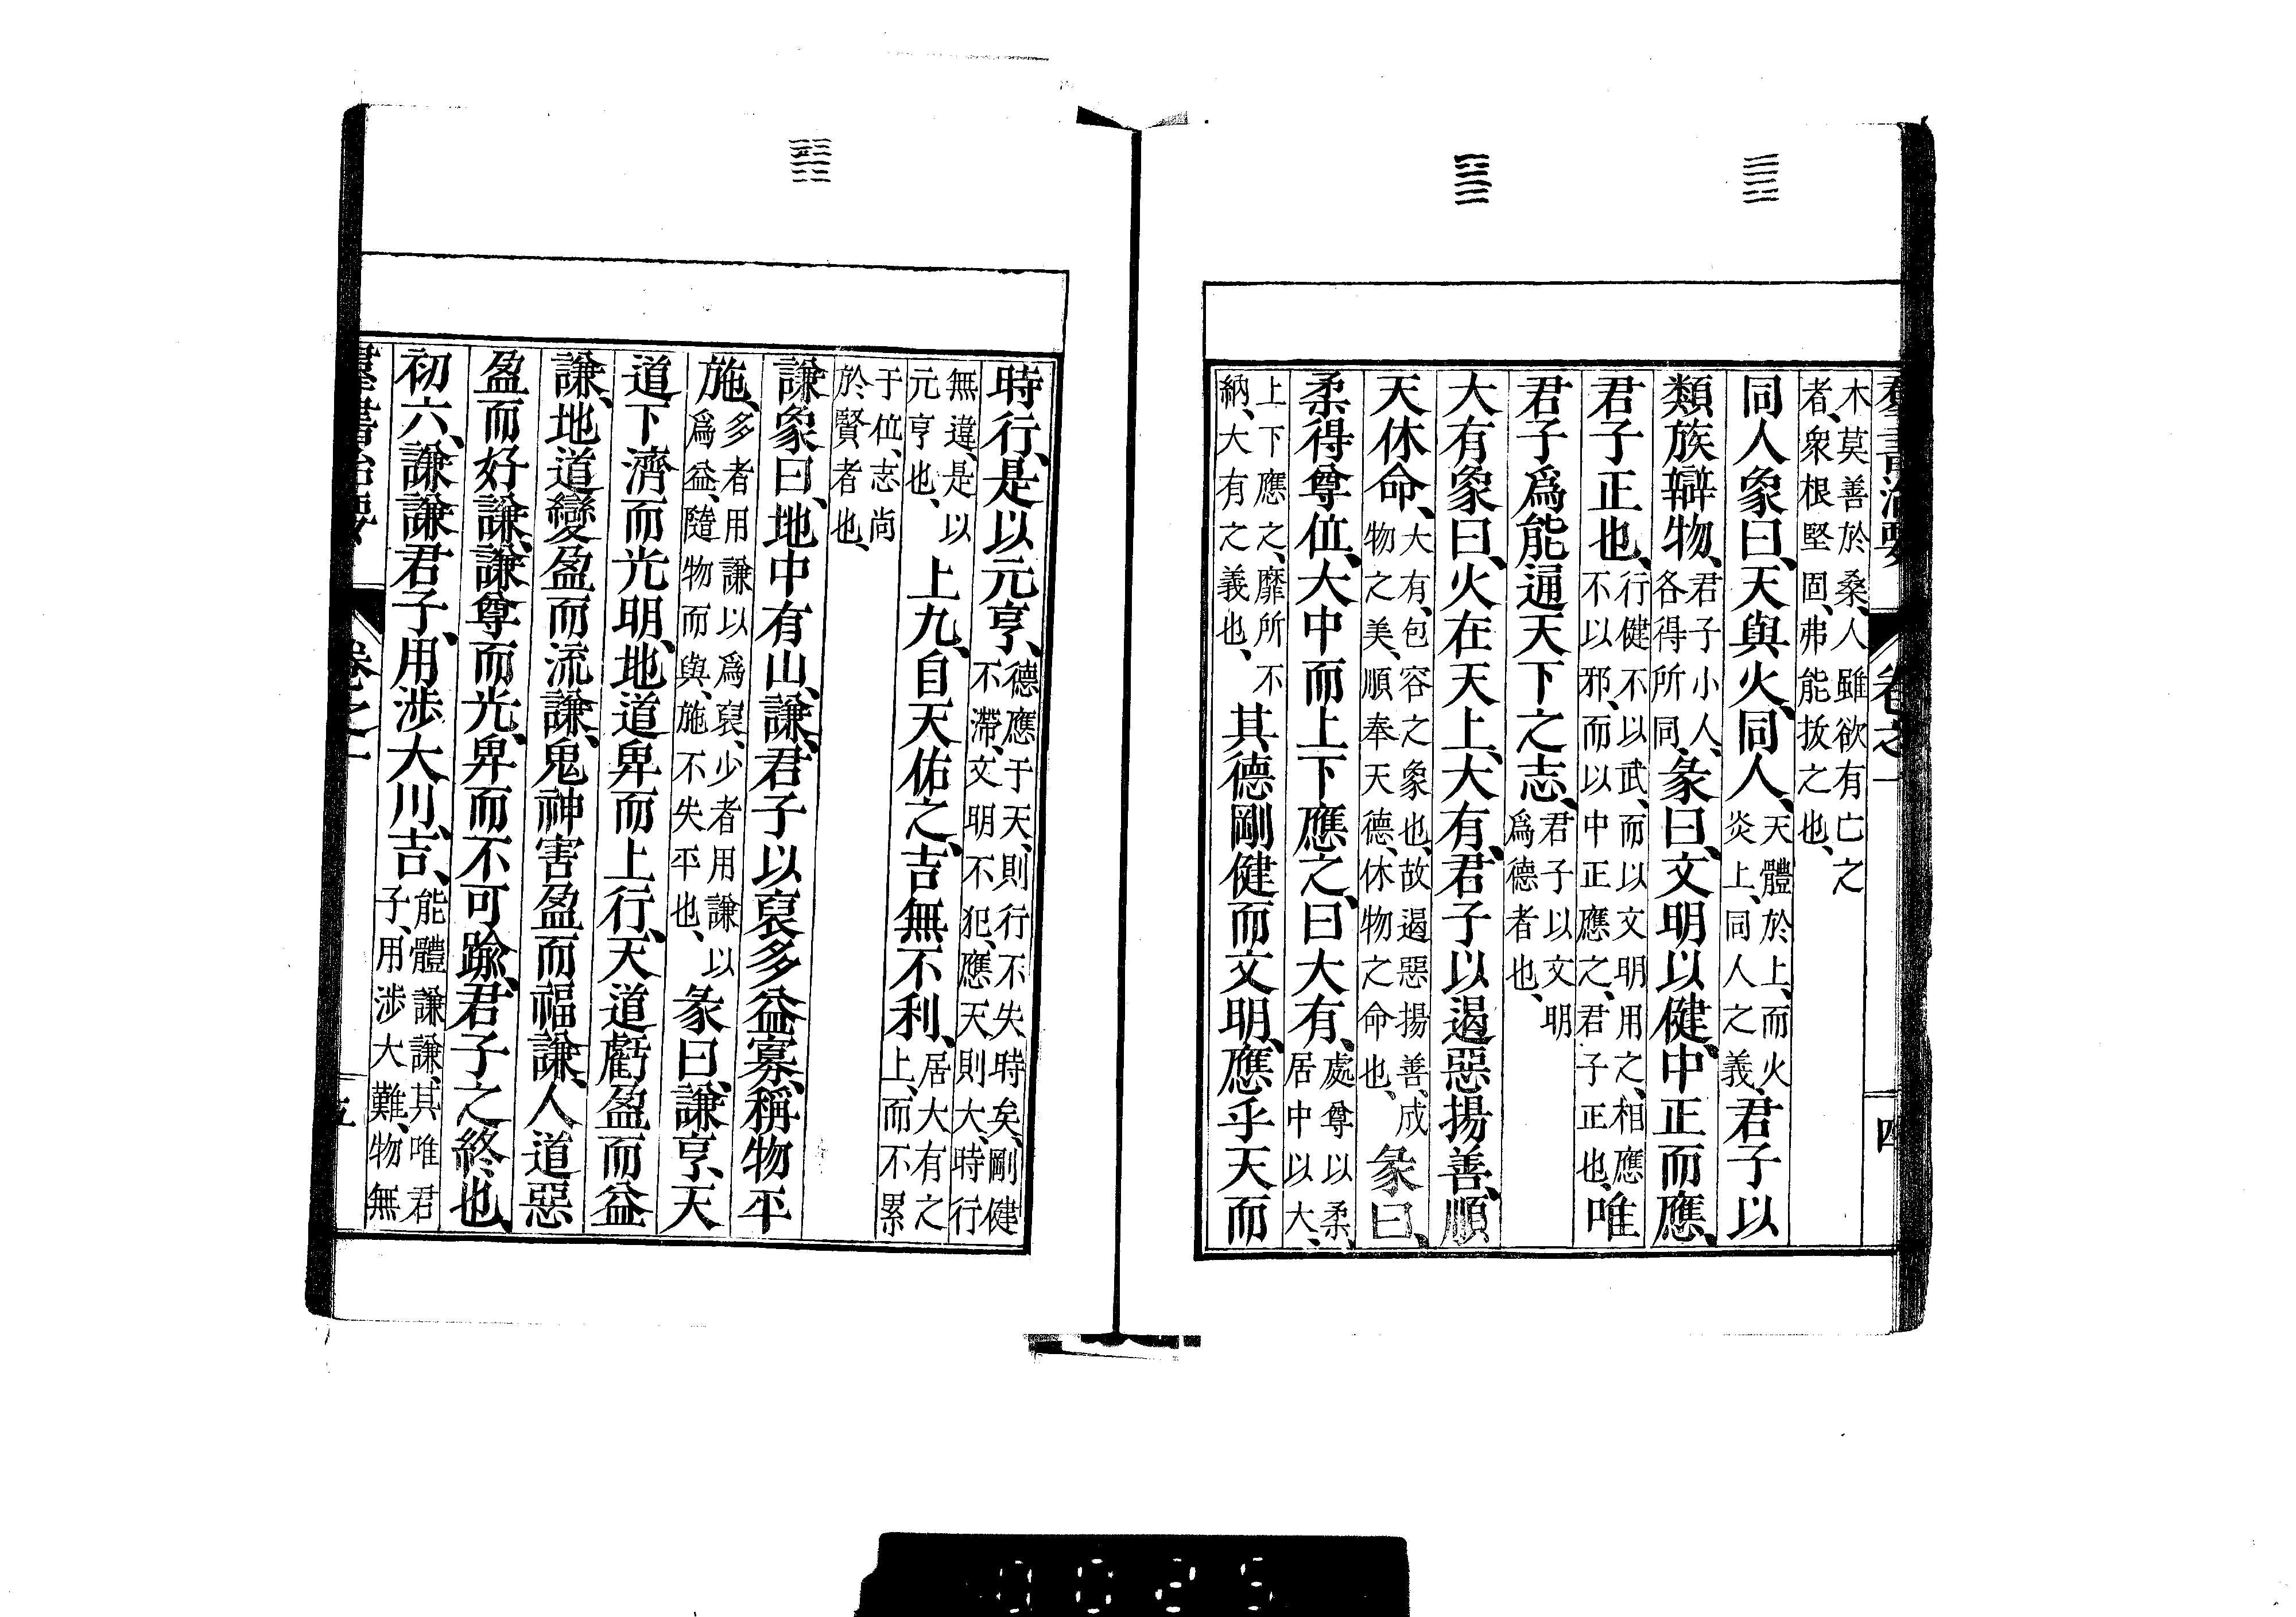 羣書治要 卷之一 四
木莫善於桑、人雖欲有亡之者、衆根堅固、弗能拔之也、
同人象曰、天與火、同人、天體於上、而火炎上、同人之義、君子以
類族辯物、君子小人、各得所同、彖曰、文明以健、中正而應、
君子正也、行健不以武、而以文明用之、相應不以邪、而以中正應之、君子正也、唯
君子爲能通天下之志、君子以文明爲德者也、
大有象曰、火在天上、大有、君子以遏惡揚善、順
天休命、大有、包容之象也、故遏惡揚善、成物之美、順奉天德、休物之命也、彖曰、
柔得尊位、大中而上下應之、曰大有、處尊以柔、居中以大、
上下應之、靡所不納、大有之義也、其德剛健而文明、應乎天而
時行、是以元亨、德應于天、則行不失時矣、剛健不滯、文明不犯、應天則大、時行
無違、是以元亨也、上九、自天佑之、吉無不利、居大有之上、而不累
于位、志尚於賢者也、
謙象曰、地中有山、謙、君子以裒多益寡、稱物平
施、多者用謙以爲裒、少者用謙以爲益、隨物而與、施不失平也、彖曰、謙亨、天
道下濟而光明、地道卑而上行、天道虧盈而益
謙、地道變盈而流謙、鬼神害盈而福謙、人道惡
盈而好謙、謙尊而光、卑而不可踰、君子之終也、
初六、謙謙君子、用涉大川、吉、能體謙謙、其唯君子、用涉大難、物無
羣書治要 卷之一 五
0025